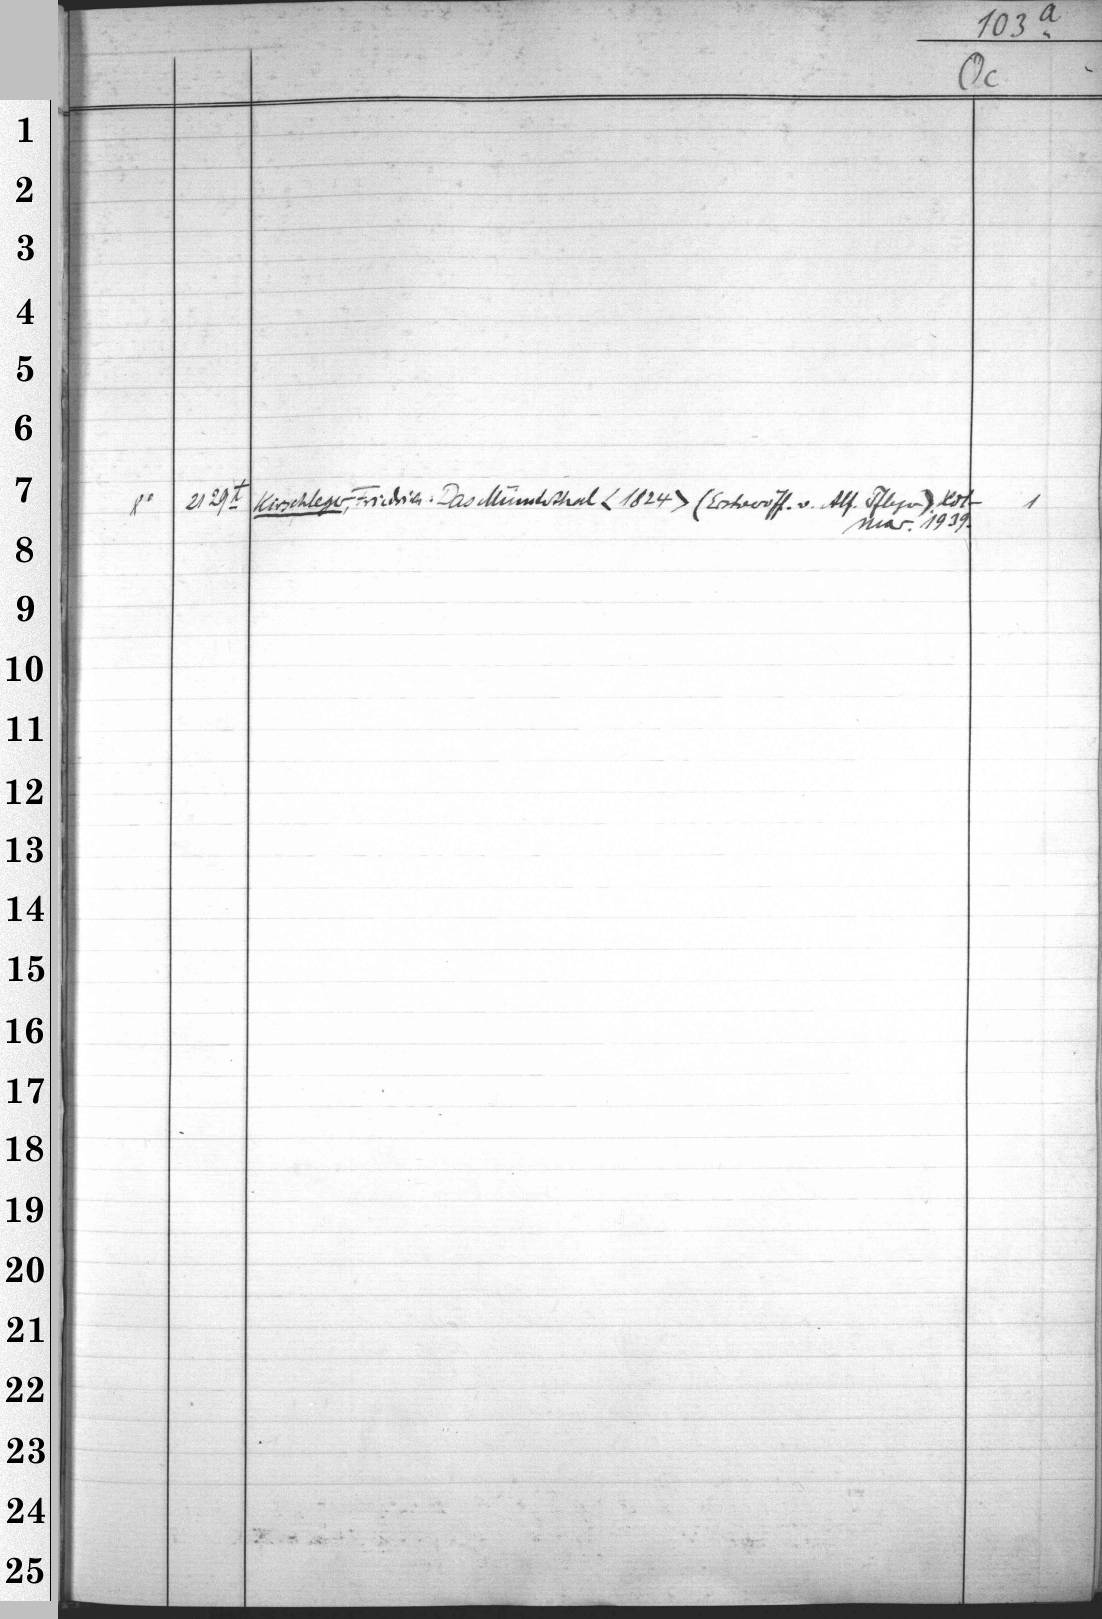 103 a
Oc
1
2
3
4
5
6
7
8° 2129t Kirschleger, Friedrich: Das Münsterthal <1824> (Erstveröff. v. Alf. Pfleger), Kol- 1
mar. 1939.
8
9
10
11
12
13
14
15
16
17
18
19
20
21
22
23
24
25